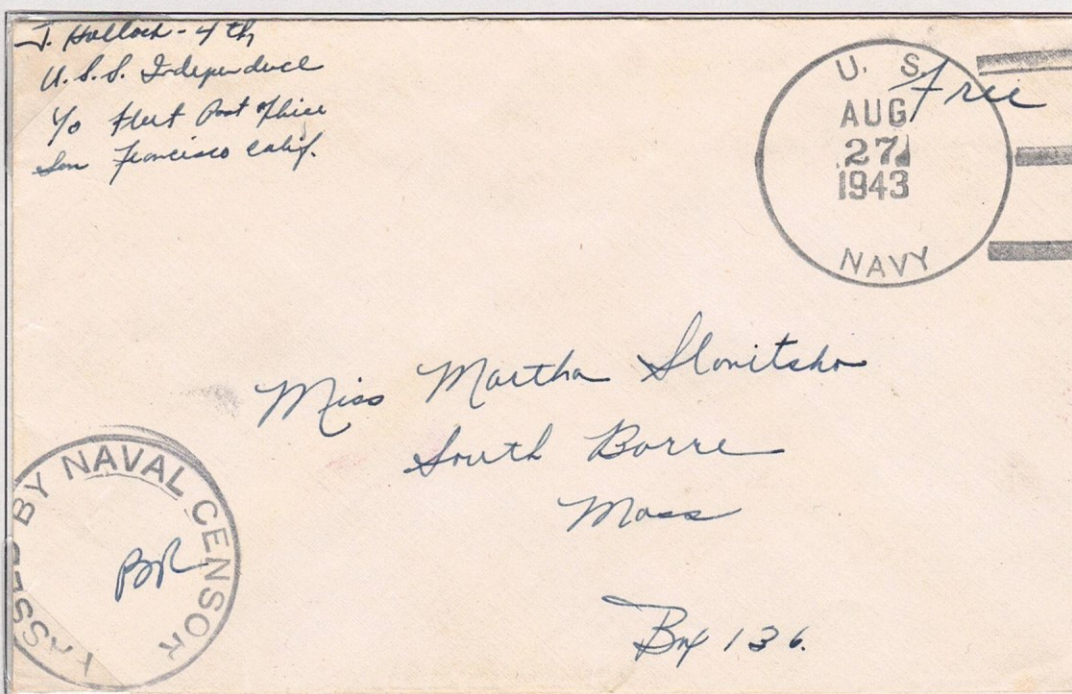 J. Hallock - 4th
U.S.S. Independence
c/o Fleet Post Office
San Francisco Calif.
U. S.
Free
AUG
27
1943
NAVY
Miss Martha
South Barre
Mass
Box 136.
PASSED BY NAVAL CENSOR
BR